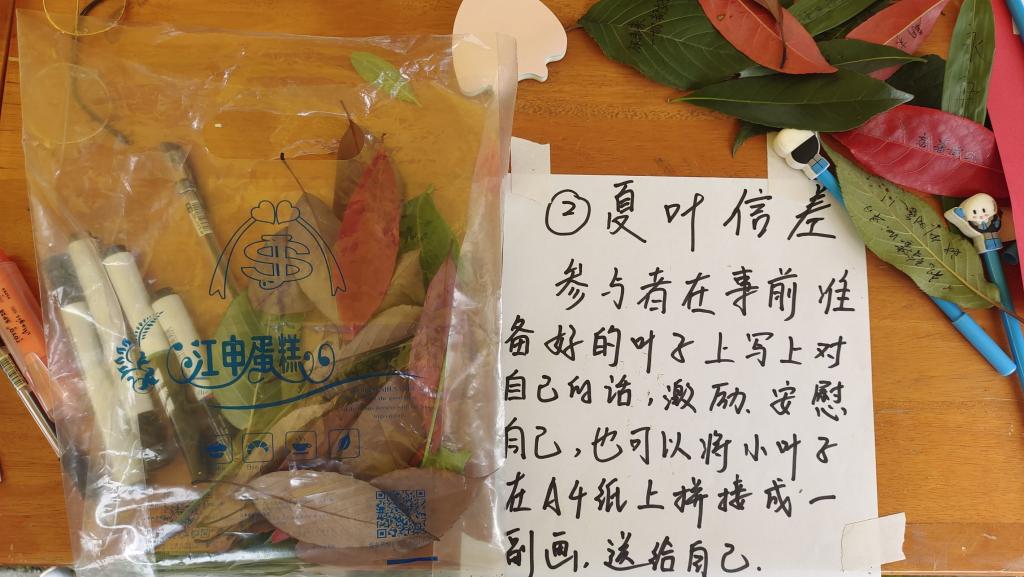 江申蛋糕
②夏叶信差
参与者在事前准
备好的叶子上写上对
自己的话，激励、安慰
自己，也可以将小叶子
在A4纸上拼接成一
副画，送给自己.